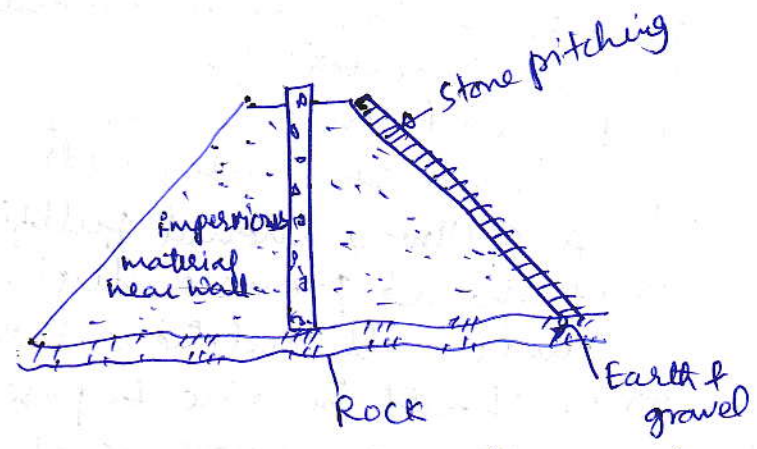 Stone pitching
impervious
material
near wall
ROCK
Earth &
gravel